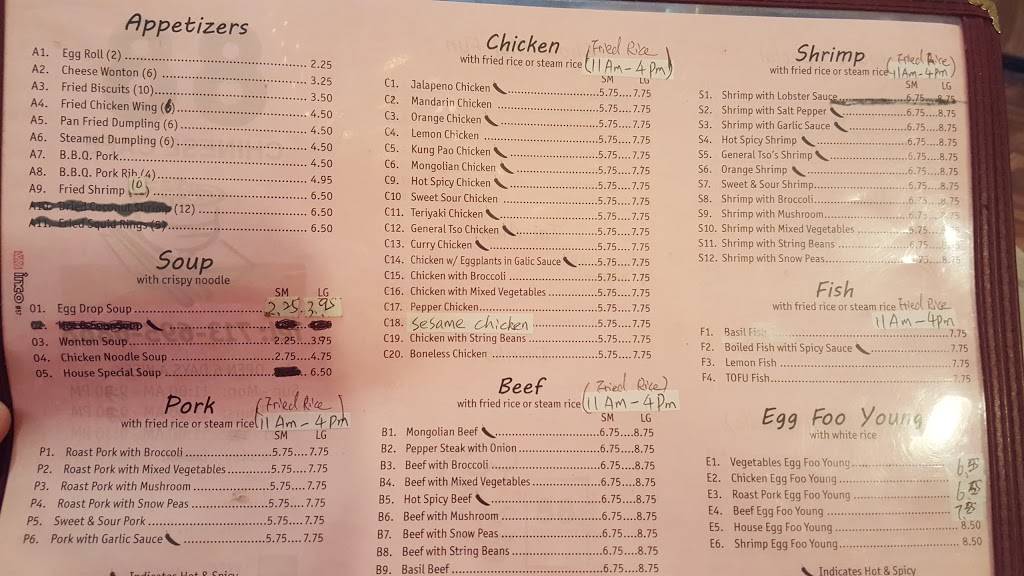 Appetizers
A1. Egg Roll (2) 2.25
A2. Cheese Wonton (6) 3.25
A3. Fried Biscuits (10) 3.50
A4. Fried Chicken Wing (6) 4.50
A5. Pan Fried Dumpling (6) 4.50
A6. Steamed Dumpling (6) 4.50
A7. B.B.Q. Pork 4.50
A8. B.B.Q. Pork Rib (4) 4.95
A9. Fried Shrimp (10) 6.50
(12) 6.50
A11. Fried Squid Rings (8) 6.50
Soup
with crispy noodle
SM LG
01. Egg Drop Soup 2.25 3.95
03. Wonton Soup 2.25 ....3.95
04. Chicken Noodle Soup 2.75....4.75
05. House Special Soup 6.50
Pork (Fried Rice)
with fried rice or steam rice 11 Am - 4 Pm
SM LG
P1. Roast Pork with Broccoli 5.75....7.75
P2. Roast Pork with Mixed Vegetables 5.75....7.75
P3. Roast Pork with Mushroom 5.75....7.75
P4. Roast Pork with Snow Peas 5.75....7.75
P5. Sweet & Sour Pork 5.75....7.75
P6. Pork with Garlic Sauce 5.75....7.75
Indicates Hot & Spicy
Chicken (Fried Rice)
with fried rice or steam rice (11 Am - 4 Pm)
SM LG
C1. Jalapeno Chicken 5.75....7.75
C2. Mandarin Chicken 5.75....7.75
C3. Orange Chicken 5.75....7.75
C4. Lemon Chicken 5.75....7.75
C5. Kung Pao Chicken 5.75....7.75
C6. Mongolian Chicken 5.75....7.75
C9. Hot Spicy Chicken 5.75....7.75
C10 Sweet Sour Chicken 5.75....7.75
C11. Teriyaki Chicken 5.75....7.75
C12. General Tso Chicken 5.75....7.75
C13. Curry Chicken 5.75....7.75
C14. Chicken w/ Eggplants in Galic Sauce 5.75....7.75
C15. Chicken with Broccoli 5.75....7.75
C16. Chicken with Mixed Vegetables 5.75....7.75
C17. Pepper Chicken 5.75....7.75
C18. Sesame chicken 5.75....7.75
C19. Chicken with String Beans 5.75....7.75
C20. Boneless Chicken 5.75....7.75
Beef (Fried Rice)
with fried rice or steam rice 11 Am - 4 Pm
SM LG
B1. Mongolian Beef 6.75....8.75
B2. Pepper Steak with Onion 6.75....8.75
B3. Beef with Broccoli 6.75....8.75
B4. Beef with Mixed Vegetables 6.75....8.75
B5. Hot Spicy Beef 6.75....8.75
B6. Beef with Mushroom 6.75....8.75
B7. Beef with Snow Peas 6.75....8.75
B8. Beef with String Beans 6.75....8.75
B9. Basil Beef 6.75....8.75
Shrimp (Fried Rice)
with fried rice or steam rice 11 Am - 4 Pm
SM LG
S1. Shrimp with Lobster Sauce 6.75 8.75
S2. Shrimp with Salt Pepper 6.75....8.75
S3. Shrimp with Garlic Sauce 6.75....8.75
S4. Hot Spicy Shrimp 6.75....8.75
S5. General Tso's Shrimp 6.75....8.75
S6. Orange Shrimp 6.75....8.75
S7. Sweet & Sour Shrimp 6.75....8.75
S8. Shrimp with Broccoli 8.75
S9. Shrimp with Mushroom 8.75
S10. Shrimp with Mixed Vegetables 8.75
S11. Shrimp with String Beans 6.75....8.75
S12. Shrimp with Snow Peas 8.75
Fish
with fried rice or steam rice Fried Rice
11 Am - 4 Pm
F1. Basil Fish 7.75
F2. Boiled Fish with Spicy Sauce 7.75
F3. Lemon Fish 7.75
F4. TOFU Fish 7.75
Egg Foo Young
with white rice
E1. Vegetables Egg Foo Young
E2. Chicken Egg Foo Young
E3. Roast Pork Egg Foo Young
E4. Beef Egg Foo Young
E5. House Egg Foo Young 8.50
E6. Shrimp Egg Foo Young 8.50
Indicates Hot & Spicy